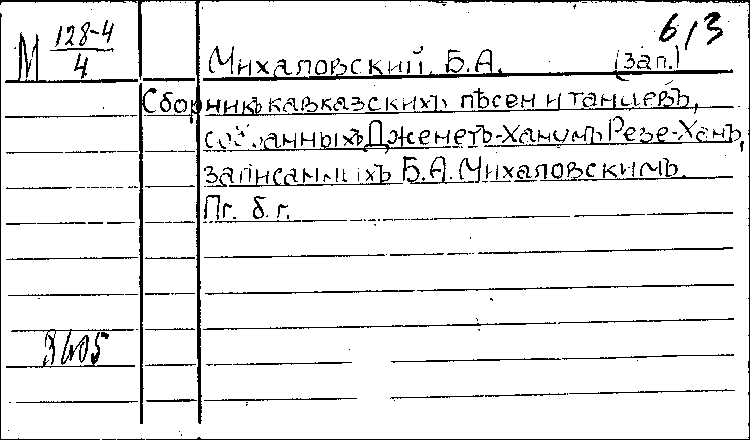 6/3
М 128-4/4
Михаловский Б.А. (зап.)
Сборникъ кавказскихъ пѣсен и танцевъ,
собранныхъ Дженетъ-Ханумъ Резе-Ханъ,
записанныхъ Б.А. Михаловскимъ.
Пг. б. г.